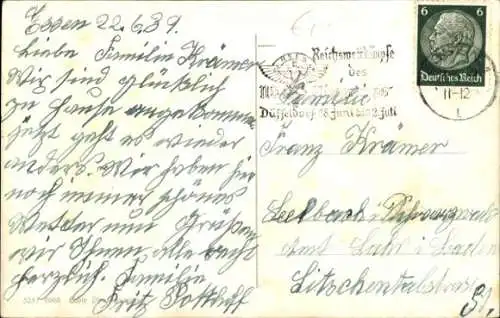 Essen 22.6.39.
Liebe Familie Krämer
Wir sind glücklich
zu Hause angekommen
jetzt geht es wieder
anders. Wir haben hier
noch immer schönes
Wetter und Grüßen
wir Ihnen alle recht
herzlich. Familie
Fritz Potthoff
6
Deutsches Reich
Reichswettkämpfe
des
Düsseldorf
Juni
2. Juli
11-12
Familie
Franz Krämer
Seelbach i. Schwarzwald
Amt Lahr i. Baden
Litschentalstrasse